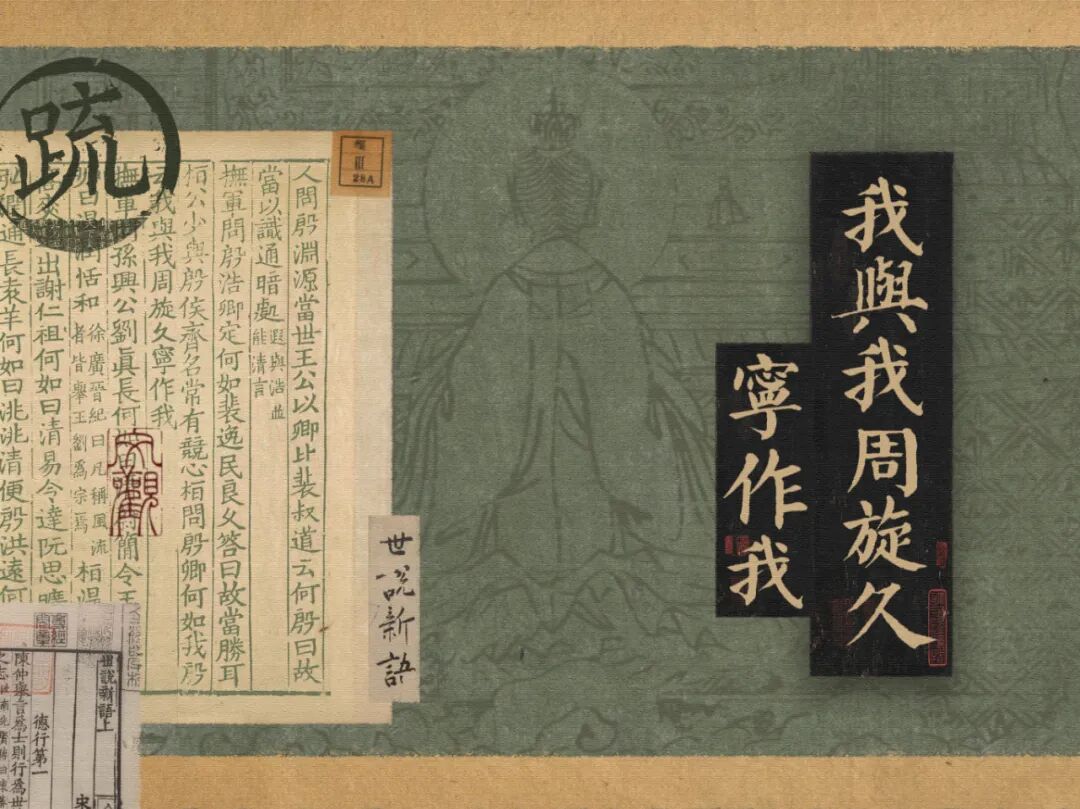 疏
我與我周旋久
寧作我
28A
人問殷淵源當世王公以卿比裴叔道云何殷曰故
當以識通暗處
遐與浩並
能清言
撫軍問殷浩卿定何如裴逸民良久答曰故當勝耳
桓公少與殷侯齊名常有競心桓問殷卿何如我殷
我與我周旋久寧作我
軍問孫興公劉眞長何簡令王
曰溫潤恬和
徐廣晉紀曰凡稱風流
者皆舉王劉爲宗焉
桓溫
出謝仁祖何如曰清易令達阮思曠
通長袁羊何如曰洮洮清便殷洪遠何
世說新語
世說新語上
宋
德行第一
陳仲舉言爲士則行爲世